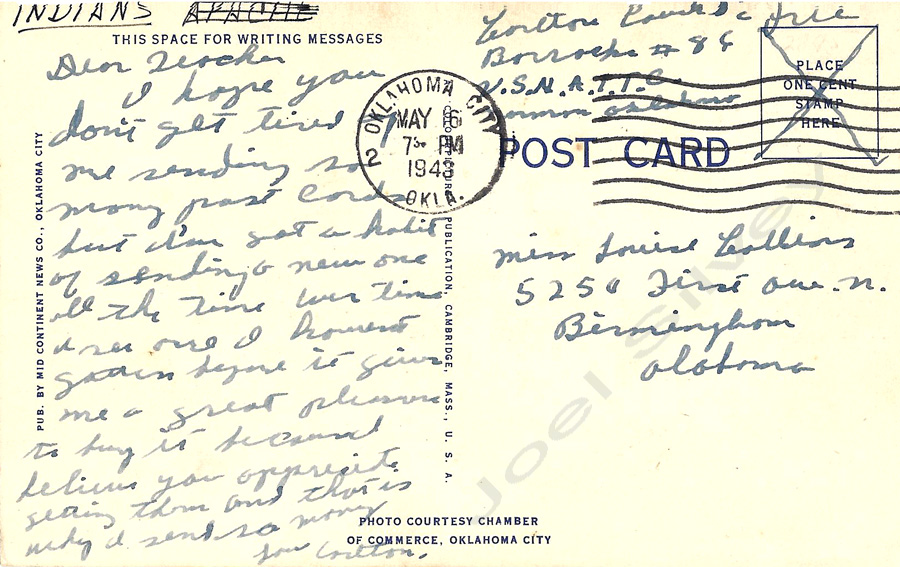 INDIANS APACHE
THIS SPACE FOR WRITING MESSAGES
Dear Teacher
I hope you
don't get tired of
me sending so
many post cards
but I'm got a habit
of sending a new one
all the time every time
I see one I haven't
gotten before it gives
me a great pleasure
to buy it because I
believe you appreciate
getting them and that is
why I send so many
Carlton.
PUB. BY MID CONTINENT NEWS CO., OKLAHOMA CITY
PUBLICATION, CAMBRIDGE, MASS., U. S. A.
PHOTO COURTESY CHAMBER
OF COMMERCE, OKLAHOMA CITY
OKLAHOMA CITY
2
MAY 16
7 30 PM
1943
OKLA.
Carlton Free
Barracks # 84
U.S.N.A.T.T.C.
Norman Oklahoma
PLACE
ONE CENT
STAMP
HERE
POST CARD
Miss Louise Collins
5250 First Ave. N.
Birmingham
Alabama
Joel Silvey